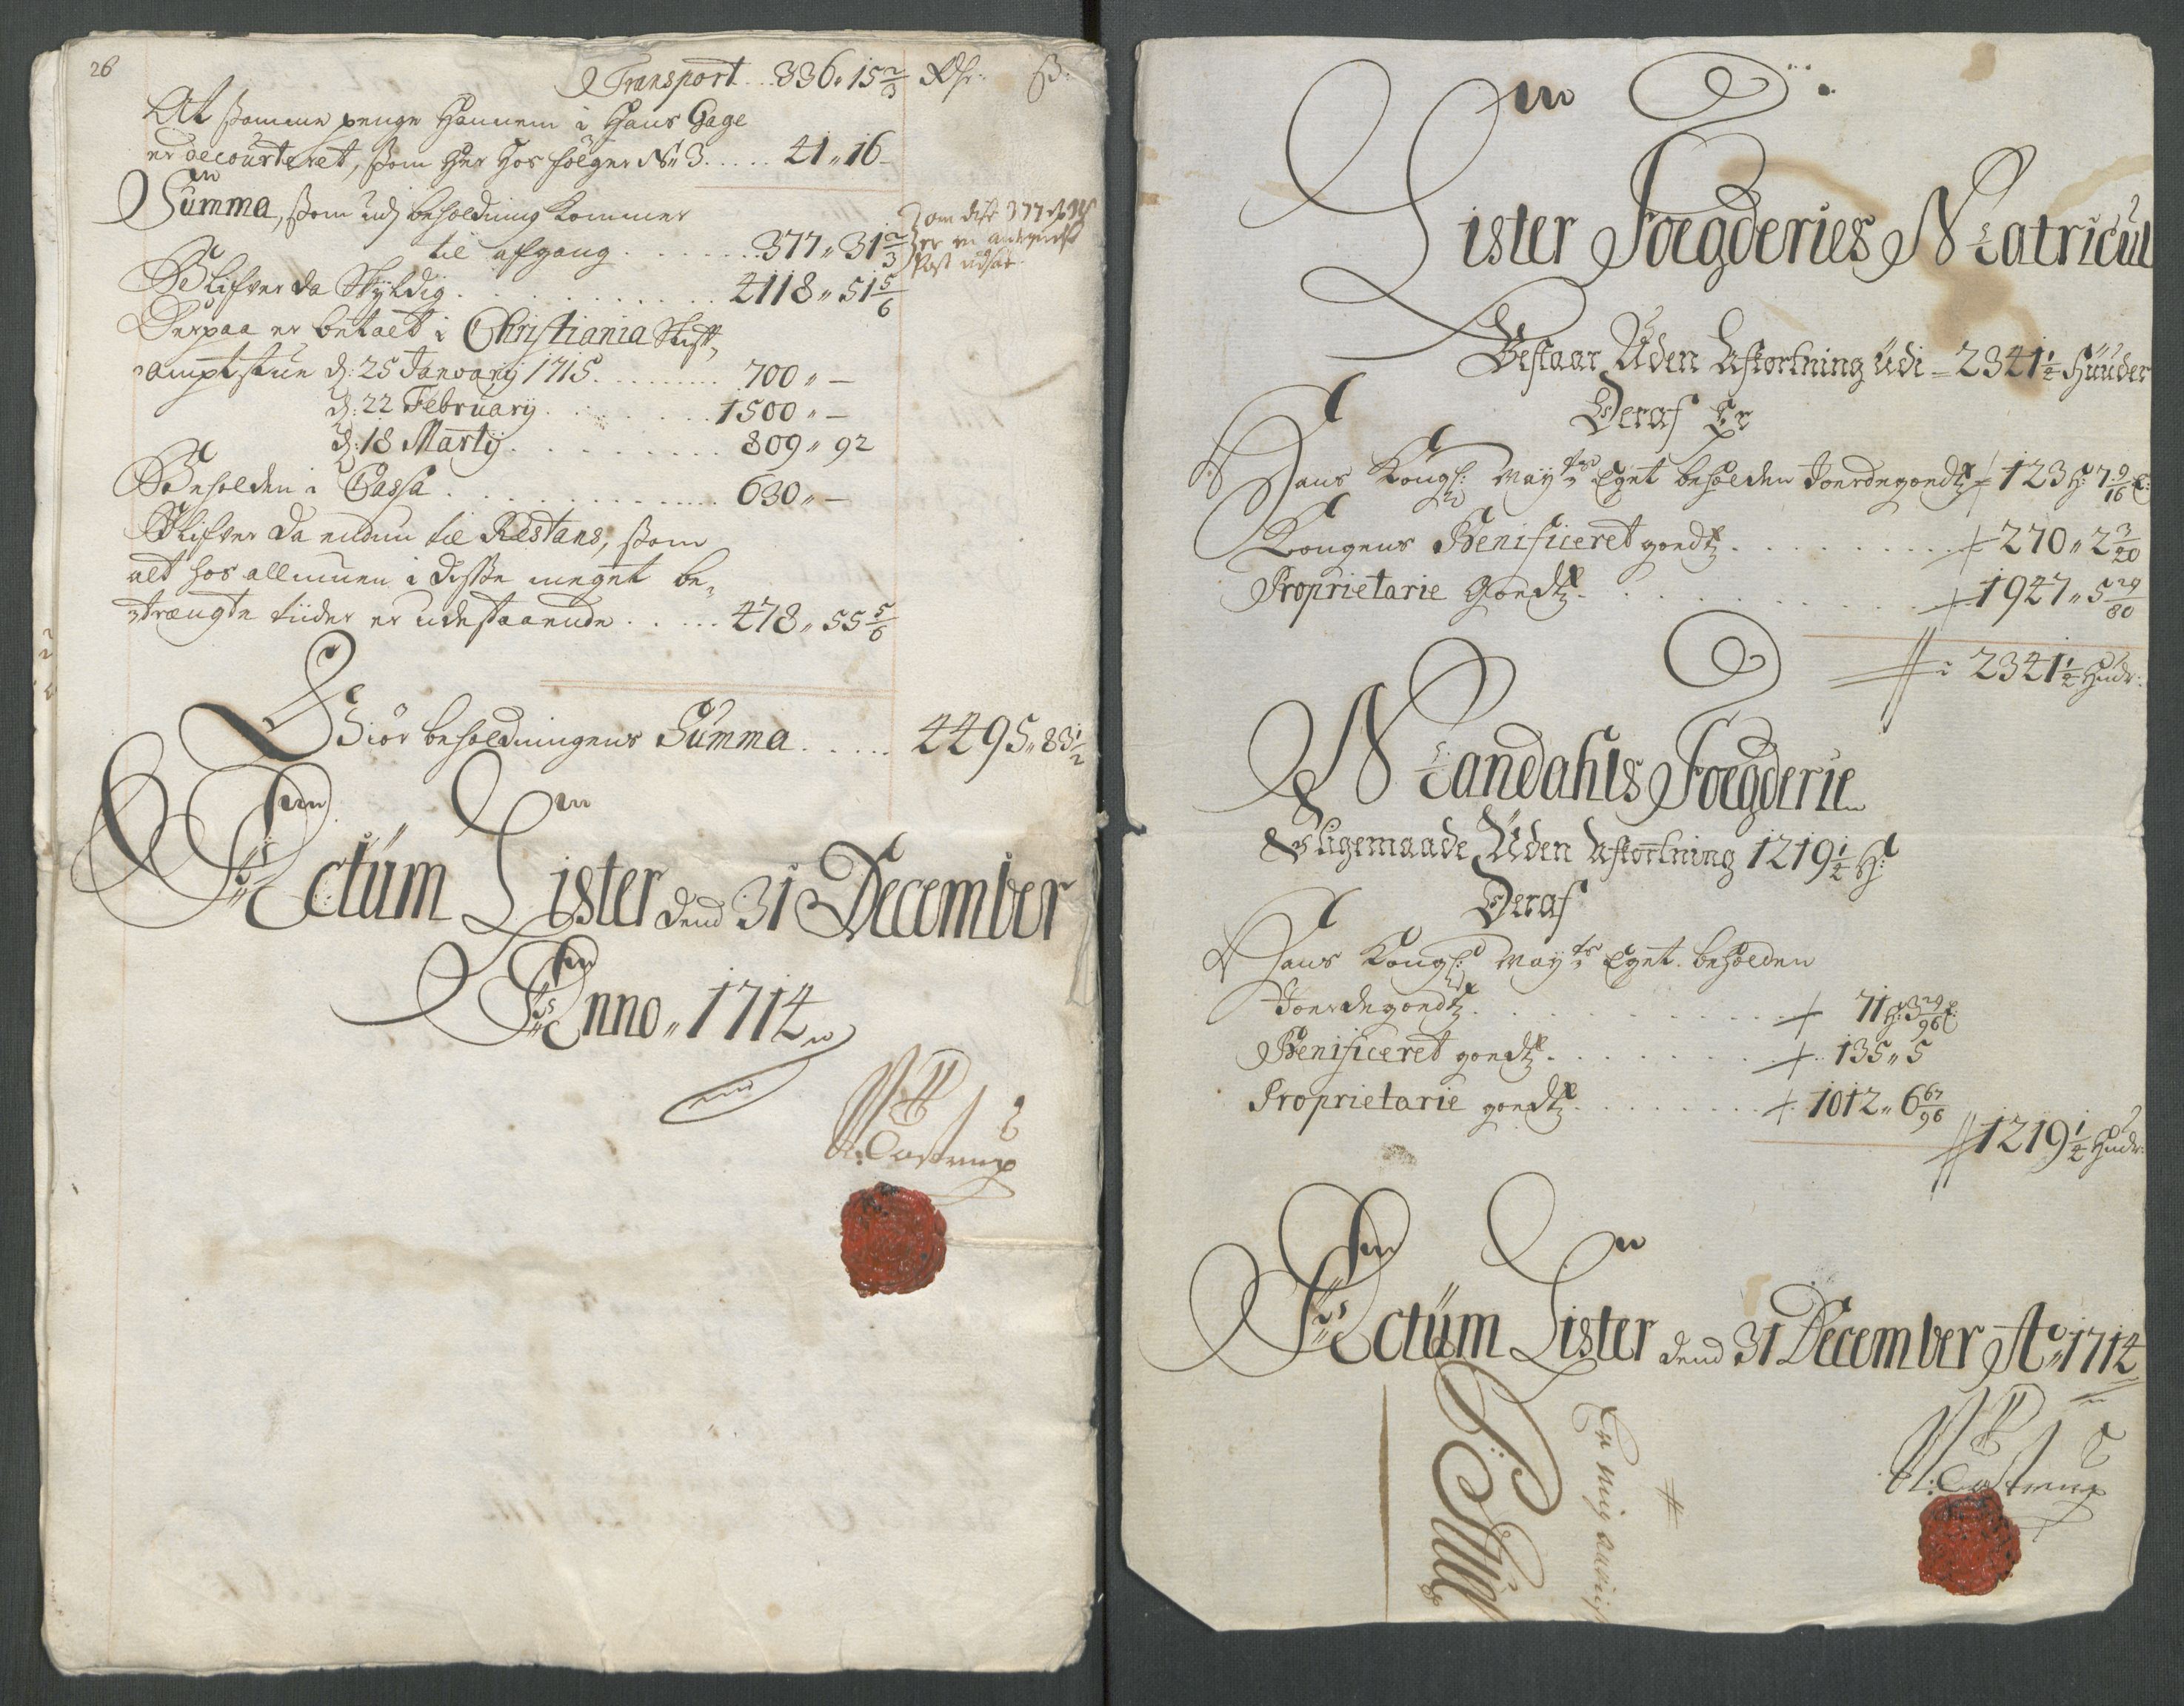 26
Transport . . 336 „ 15 2/3 Rdr: ß:
At samme penge Hannem i Hans Gage
er decourteret, som Her Hos følger No 3 . . . . . 41 „ 16
Summa, som udj beholdning kommer
til afgang . . . . . . . 377 „ 31 2/3
om disse 377 rd
er en
Post udsat
Blifver da Skyldig . . . . . . . . . 4118 „ 51 5/6
Derpaa er betalt i Christiania Stift-
amptstue d: 25 Janvarij 1715 . . . . . . . . 700 „ —
d: 22 February . . . . . . . . 1500 „ —
d: 18 Martij . . . . . . . . . 809 „ 92
Beholden i Cassa . . . . . . . . . . . 630 „ —
Blifver da endnu til Restans, som
alt hos allmuen i disse meget be-
trængte tiider er udestaaende . . . . . 478 „ 55 5/6
Giør beholdningens Summa . . . . . 4495 „ 83 1/2
Actum Lister dend 31 December
Anno „ 1714
Lister Foegderies Matricul
Bestaar Uden Afkortning udi = 2341 1/2 Huuder
Deraf Er
Hans Kongl: Mayts Eget beholden Joerdegoedtz 123 H: 7 9/16 E:
Kongens Benificeret goedtz . . . . . . . . 270 „ 2 3/20
Proprietarie Goedtz . . . . . . . . . . 1947 „ 5 29/80
2341 1/2 Hudr:
Mandahls Foegderie
Ligemaade Uden Afkortning 1219 1/4 H:
Deraf
Hans Kongl: Mayts Eget beholden
Joerdegoedtz . . . . . . . . . . . 71 H: 3 29/96 E:
Benificeret goedtz . . . . . . . . 135 „ 5
Proprietarie goedtz . . . . . . . . 1012 „ 6 67/96
1219 1/4 Hudr:
Actum Lister dend 31 December Ao 1714
Er mig